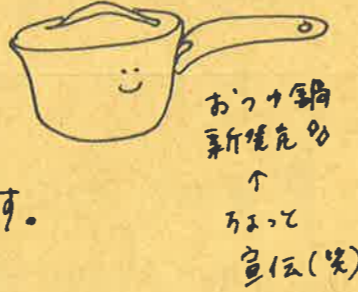 おつゆ鍋
新発売!!
す。
↑
ちょっと
宣伝(笑)